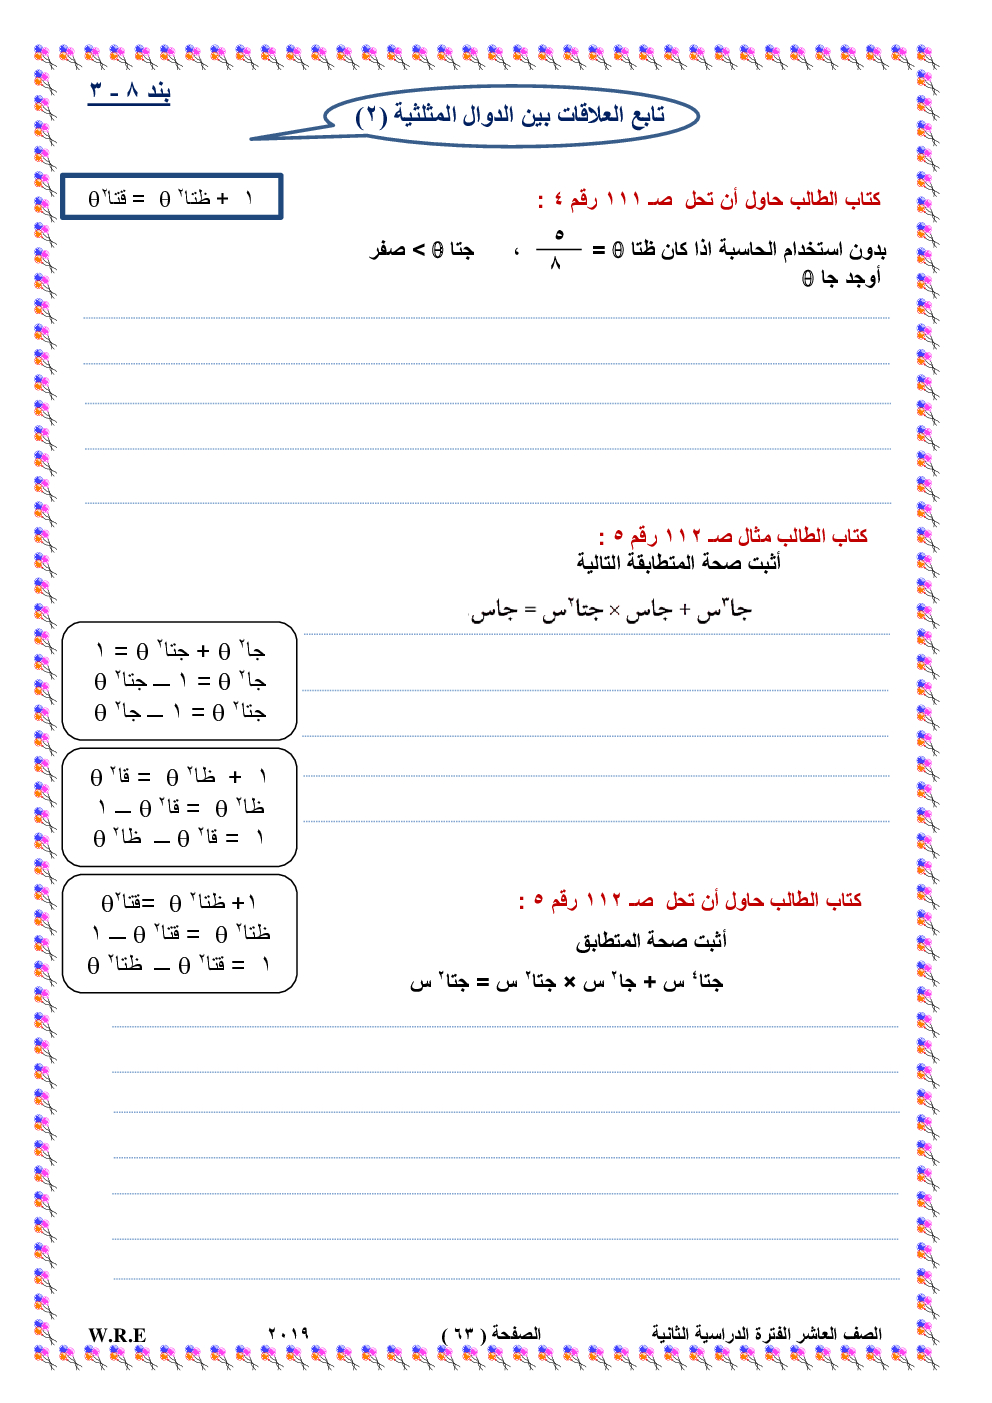 بند ٨ - ٣
تابع العلاقات بين الدوال المثلثية (٢)
١ + ظتا٢ θ = قتا٢ θ
كتاب الطالب حاول أن تحل صـ ١١١ رقم ٤ :
بدون استخدام الحاسبة اذا كان ظتا θ = ٥/٨ ، جتا θ < صفر
أوجد جا θ
كتاب الطالب مثال صـ ١١٢ رقم ٥ :
أثبت صحة المتطابقة التالية
جا٣س + جاس × جتا٢س = جاس
جا٢ θ + جتا٢ θ = ١
جا٢ θ = ١ – جتا٢ θ
جتا٢ θ = ١ – جا٢ θ
١ + ظا٢ θ = قا٢ θ
ظا٢ θ = قا٢ θ – ١
١ = قا٢ θ – ظا٢ θ
١+ ظتا٢ θ =قتا٢ θ
ظتا٢ θ = قتا٢ θ – ١
١ = قتا٢ θ – ظتا٢ θ
كتاب الطالب حاول أن تحل صـ ١١٢ رقم ٥ :
أثبت صحة المتطابق
جتا٤ س + جا٢ س × جتا٢ س = جتا٢ س
الصف العاشر الفترة الدراسية الثانية الصفحة ( ٦٣ ) ٢٠١٩ W.R.E